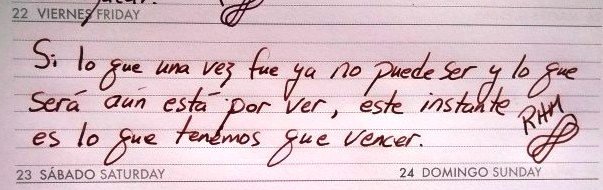 22 VIERNES FRIDAY
Si lo que una vez fue ya no puede ser y lo que
será aún está por ver, este instante
es lo que tenemos que vencer.
RHM
23 SÁBADO SATURDAY
24 DOMINGO SUNDAY